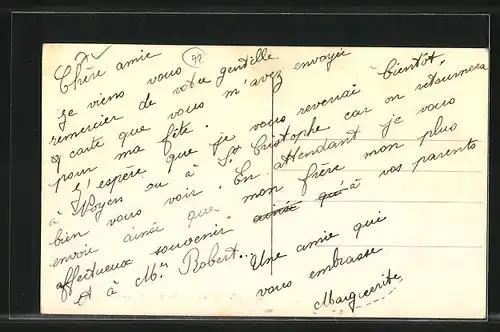 92
Chère amie
Je viens vous
remercier de votre gentille
carte que vous m'avez envoyée
pour ma fête.
J'espère que je vous reverrai bientôt,
à Noyen ou à St Cristophe car on retournera
bien vous voir. En attendant je vous
envoie ainsie que mon frère mon plus
affectueux souvenir ainsie qu'à à vos parents
et à Mr Robert...
Une amie qui
vous embrasse
Marguerite